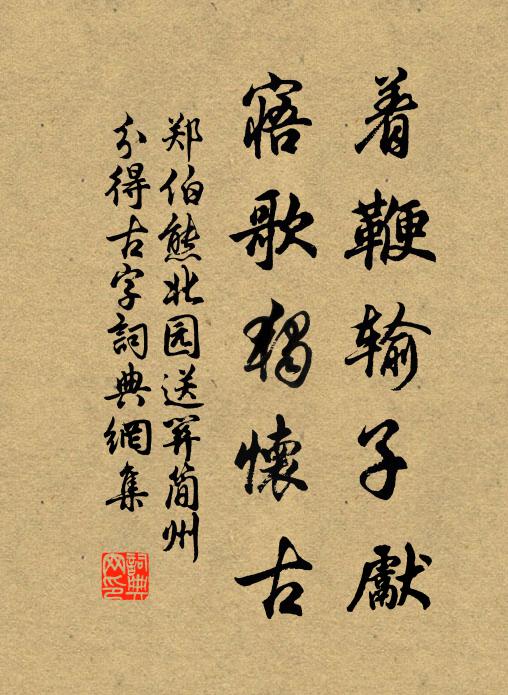 着鞭输子獻
寤歌獨懷古
郑伯熊北园送简州
分得古字詞典網集
詞典
网印